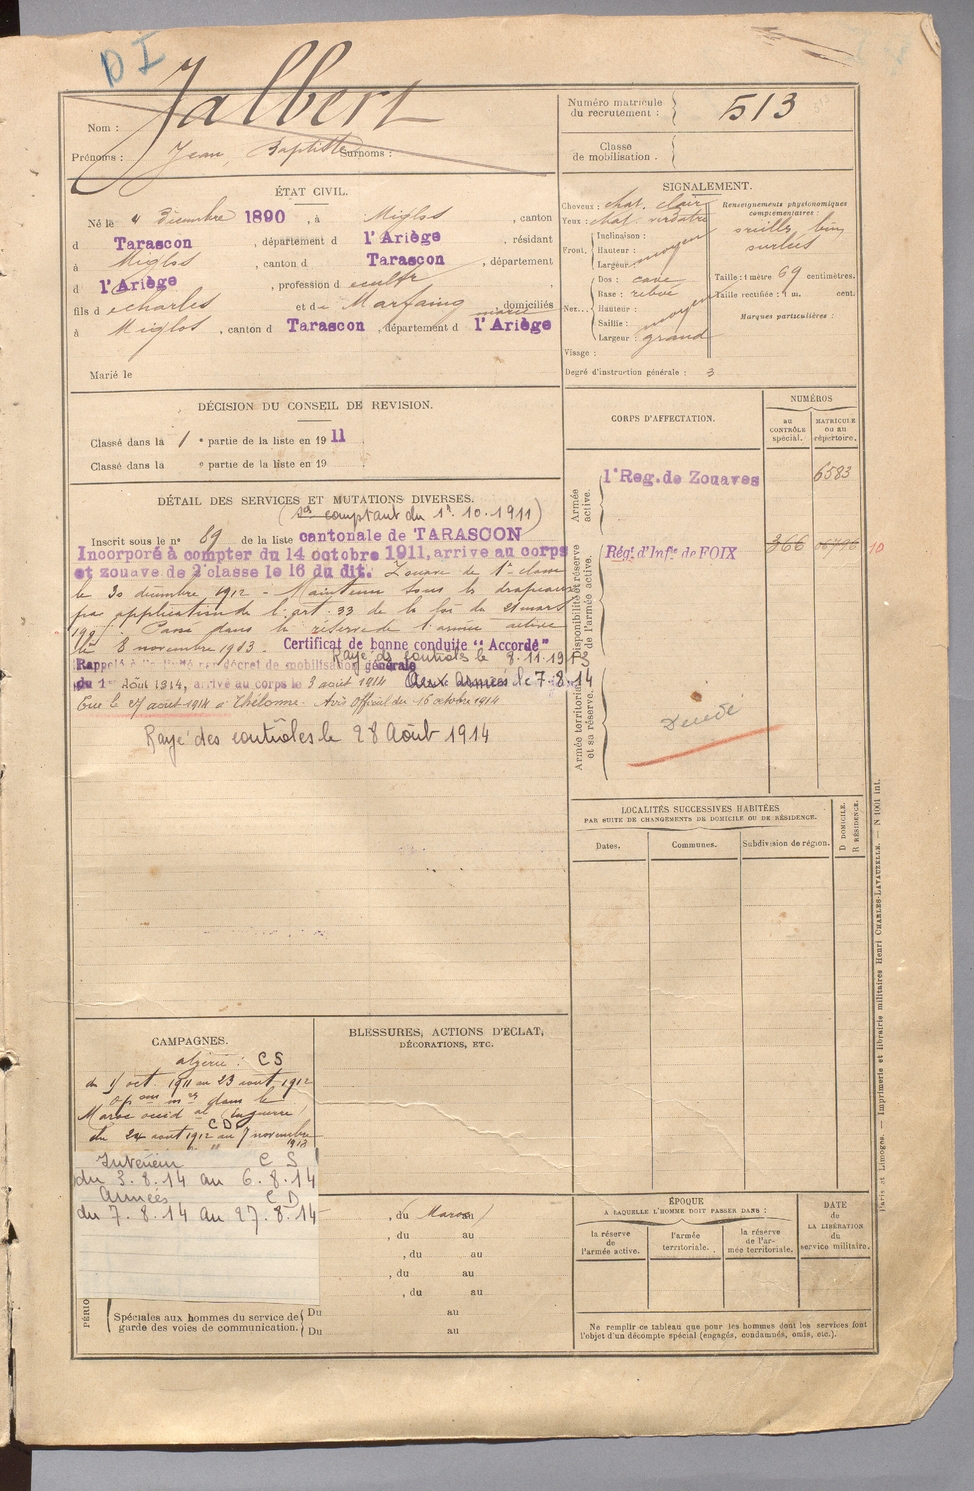 D I
Nom : Jalbert
Prénoms : Jean, Baptiste Surnoms :
Numéro matricule
du recrutement : 513
Classe
de mobilisation .
ÉTAT CIVIL.
Né le 4 Décembre 1890 , à Miglos , canton
d Tarascon , département d l'Ariège , résidant
à Miglos , canton d Tarascon , département
d l'Ariège , profession d cultr
fils d echarles et de Marfaing marie , domiciliés
à Miglos , canton d Tarascon , département d l'Ariège
Marié le
SIGNALEMENT.
Cheveux : chat. clair
Yeux : chat. verdâtre
Front. Inclinaison :
Hauteur : moyen
Largeur :
Nez... Dos : cave
Base : relevé
Hauteur :
Saillie : moyen
Largeur : grand
Visage :
Renseignements physionomiques
complémentaires :
oreilles bien
ourlées
Taille : 1 mètre 69 centimètres.
Taille rectifiée : 1 m. cent.
Marques particulières :
Degré d'instruction générale : 3
DÉCISION DU CONSEIL DE REVISION.
Classé dans la 1 e partie de la liste en 1911 .
Classé dans la e partie de la liste en 19 .
CORPS D'AFFECTATION.
NUMÉROS
au
CONTRÔLE
spécial.
MATRICULE
ou au
répertoire.
Armée
active.
1er Reg. de Zouaves 6583
Disponibilité et réserve
de l'armée active.
Régt d'Infie de FOIX 366 06796 10
Armée territoriale
et sa réserve.
Décédé
DÉTAIL DES SERVICES ET MUTATIONS DIVERSES.
(sce comptant du 1er. 10. 1911)
Inscrit sous le no 89 de la liste cantonale de TARASCON
Incorporé à compter du 14 octobre 1911, arrive au corps
et zouave de 2e classe le 16 du dit. Zouave de 1e classe
le 30 décembre 1912 - Maintenu sous les drapeaux
par application de l'art. 33 de la loi du 21 mars
1905. Passé dans la réserve de l'armée active
le 8 novembre 1913. Certificat de bonne conduite "Accordé"
Rayé des contrôles le 8.11.1913
Rappelé à l'activité par décret de mobilisation générale
du 1er Août 1914, arrivé au corps le 3 août 1914 Aux armées le 7.8.14
Tué le 27 août 1914 à Thélonne. Avis Officiel du 16 octobre 1914
Rayé des contrôles le 28 Août 1914
LOCALITÉS SUCCESSIVES HABITÉES
PAR SUITE DE CHANGEMENTS DE DOMICILE OU DE RÉSIDENCE.
Dates.
Communes.
Subdivision de région.
D DOMICILE.
R RÉSIDENCE.
CAMPAGNES.
algérie : C S
du 15 oct. 1911 au 23 août 1912
opons mres dans le
Maroc occidal (en guerre)
C D
du 24 août 1912 au 7 novembre
1913
Intérieur C S
du 3.8.14 au 6.8.14
Armées C D
du 7.8.14 au 27.8.14
BLESSURES, ACTIONS D'ÉCLAT,
DÉCORATIONS, ETC.
, du Maroc) au
, du au
, du au
, du au
, du au
PÉRIO
Spéciales aux hommes du service de
garde des voies de communication.
Du au
Du au
ÉPOQUE
A LAQUELLE L'HOMME DOIT PASSER DANS :
la réserve
de
l'armée active.
l'armée
territoriale.
la réserve
de l'ar-
mée territoriale.
DATE
de
LA LIBÉRATION
du
service militaire.
Ne remplir ce tableau que pour les hommes dont les services font
l'objet d'un décompte spécial (engagés, condamnés, omis, etc.).
Paris et Limoges. — Imprimerie et librairie militaires Henri CHARLES-LAVAUZELLE. — N 1001 int.